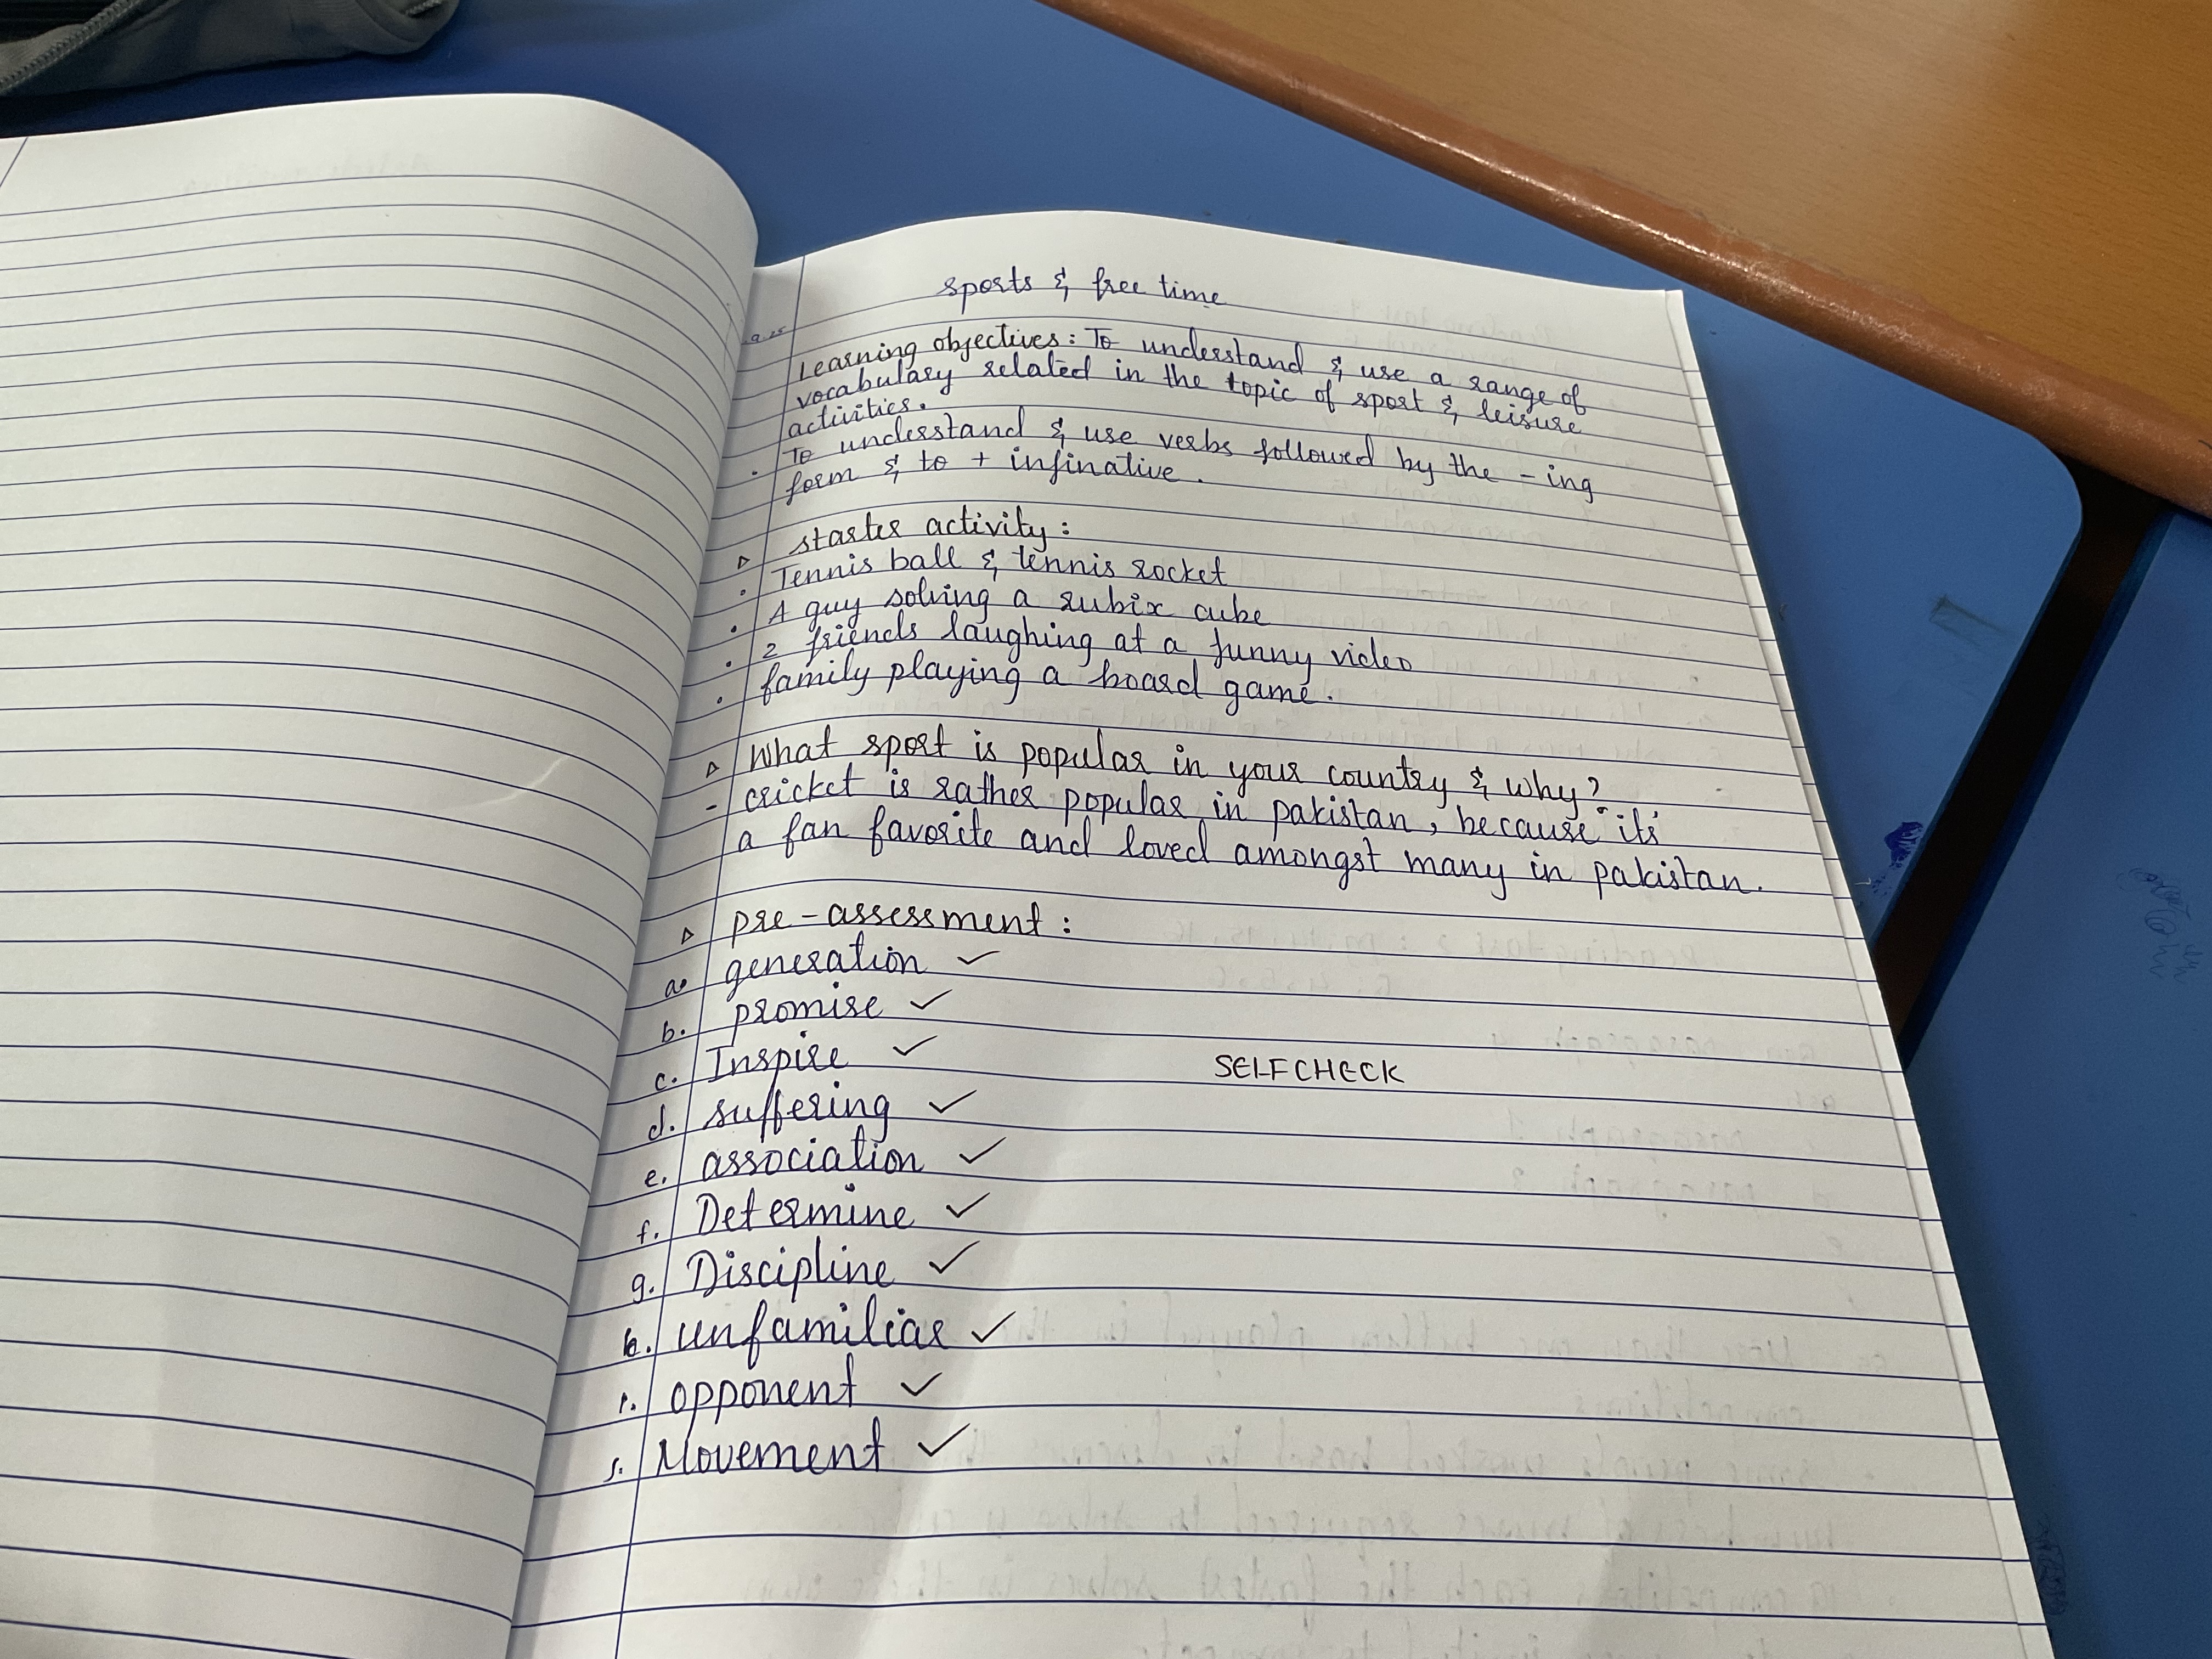 sports & free time
Learning objectives: To understand & use a range of
vocabulary related in the topic of sport & leisure
activities.
. To understand & use verbs followed by the -ing
form & to + infinative.
▷ starter activity:
. Tennis ball & tennis rocket
. A guy solving a rubix cube
. 2 friends laughing at a funny video
. family playing a board game.
▷ What sport is popular in your country & why?
- cricket is rather popular in pakistan, because it's
a fan favorite and loved amongst many in pakistan.
▷ pre-assessment:
a. generation ✓
b. promise ✓
c. Inspire ✓
SELFCHECK
d. suffering ✓
e. association ✓
f. Determine ✓
g. Discipline ✓
h. unfamiliar ✓
i. opponent ✓
j. Movement ✓